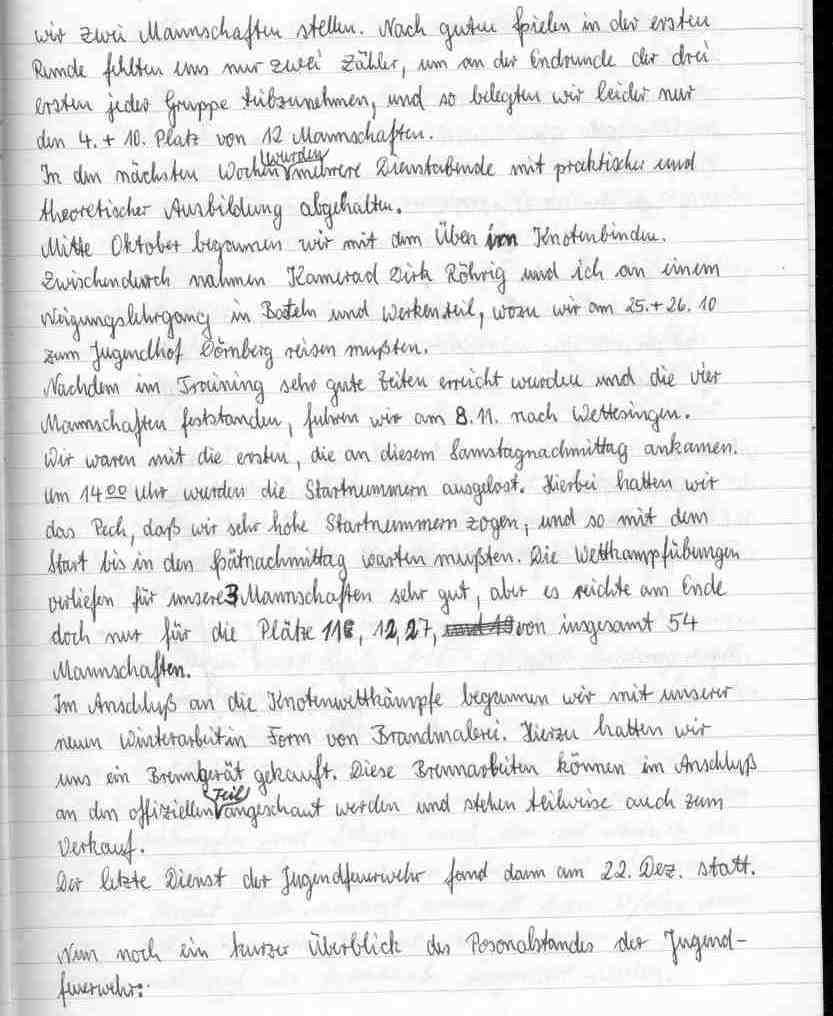 wir zwei Mannschaften stellen. Nach guten Spielen in der ersten
Runde fehlten uns nur zwei Zähler, um an der Endrunde der drei
ersten jeder Gruppe teilzunehmen, und so belegten wir leider nur
den 4. + 10. Platz von 12 Mannschaften.
In den nächsten Wochen wurden mehrere Dienstabende mit praktischer und
theoretischer Ausbildung abgehalten.
Mitte Oktober begannen wir mit dem Üben von Knotenbinden.
Zwischendurch nahmen Kamerad Dirk Röhrig und ich an einem
Neigungslehrgang in Basteln und Werken teil, wozu wir am 25. + 26. 10
zum Jugendhof Dörnberg reisen mußten.
Nachdem im Training sehr gute Zeiten erreicht wurden und die vier
Mannschaften feststanden, fuhren wir am 8. 11. nach Wettesingen.
Wir waren mit die ersten, die an diesem Samstagnachmittag ankamen.
Um 14 00 Uhr wurden die Startnummern ausgelost. Hierbei hatten wir
das Pech, daß wir sehr hohe Startnummern zogen, und so mit dem
Start bis in den Spätnachmittag warten mußten. Die Wettkampfübungen
verliefen für unsere 3 Mannschaften sehr gut, aber es reichte am Ende
doch nur für die Plätze 12, 27, von insgesamt 54
Mannschaften.
Im Anschluß an die Knotenwettkämpfe begannen wir mit unserer
neuen Winterarbeit in Form von Brandmalerei. Hierzu hatten wir
uns ein Brenngerät gekauft. Diese Brennarbeiten können im Anschluß
an den offiziellen Teil angeschaut werden und stehen teilweise auch zum
Verkauf.
Der letzte Dienst der Jugendfeuerwehr fand dann am 22. Dez. statt.
Nun noch ein kurzer Überblick des Posonalstandes der Jugend-
feuerwehr: